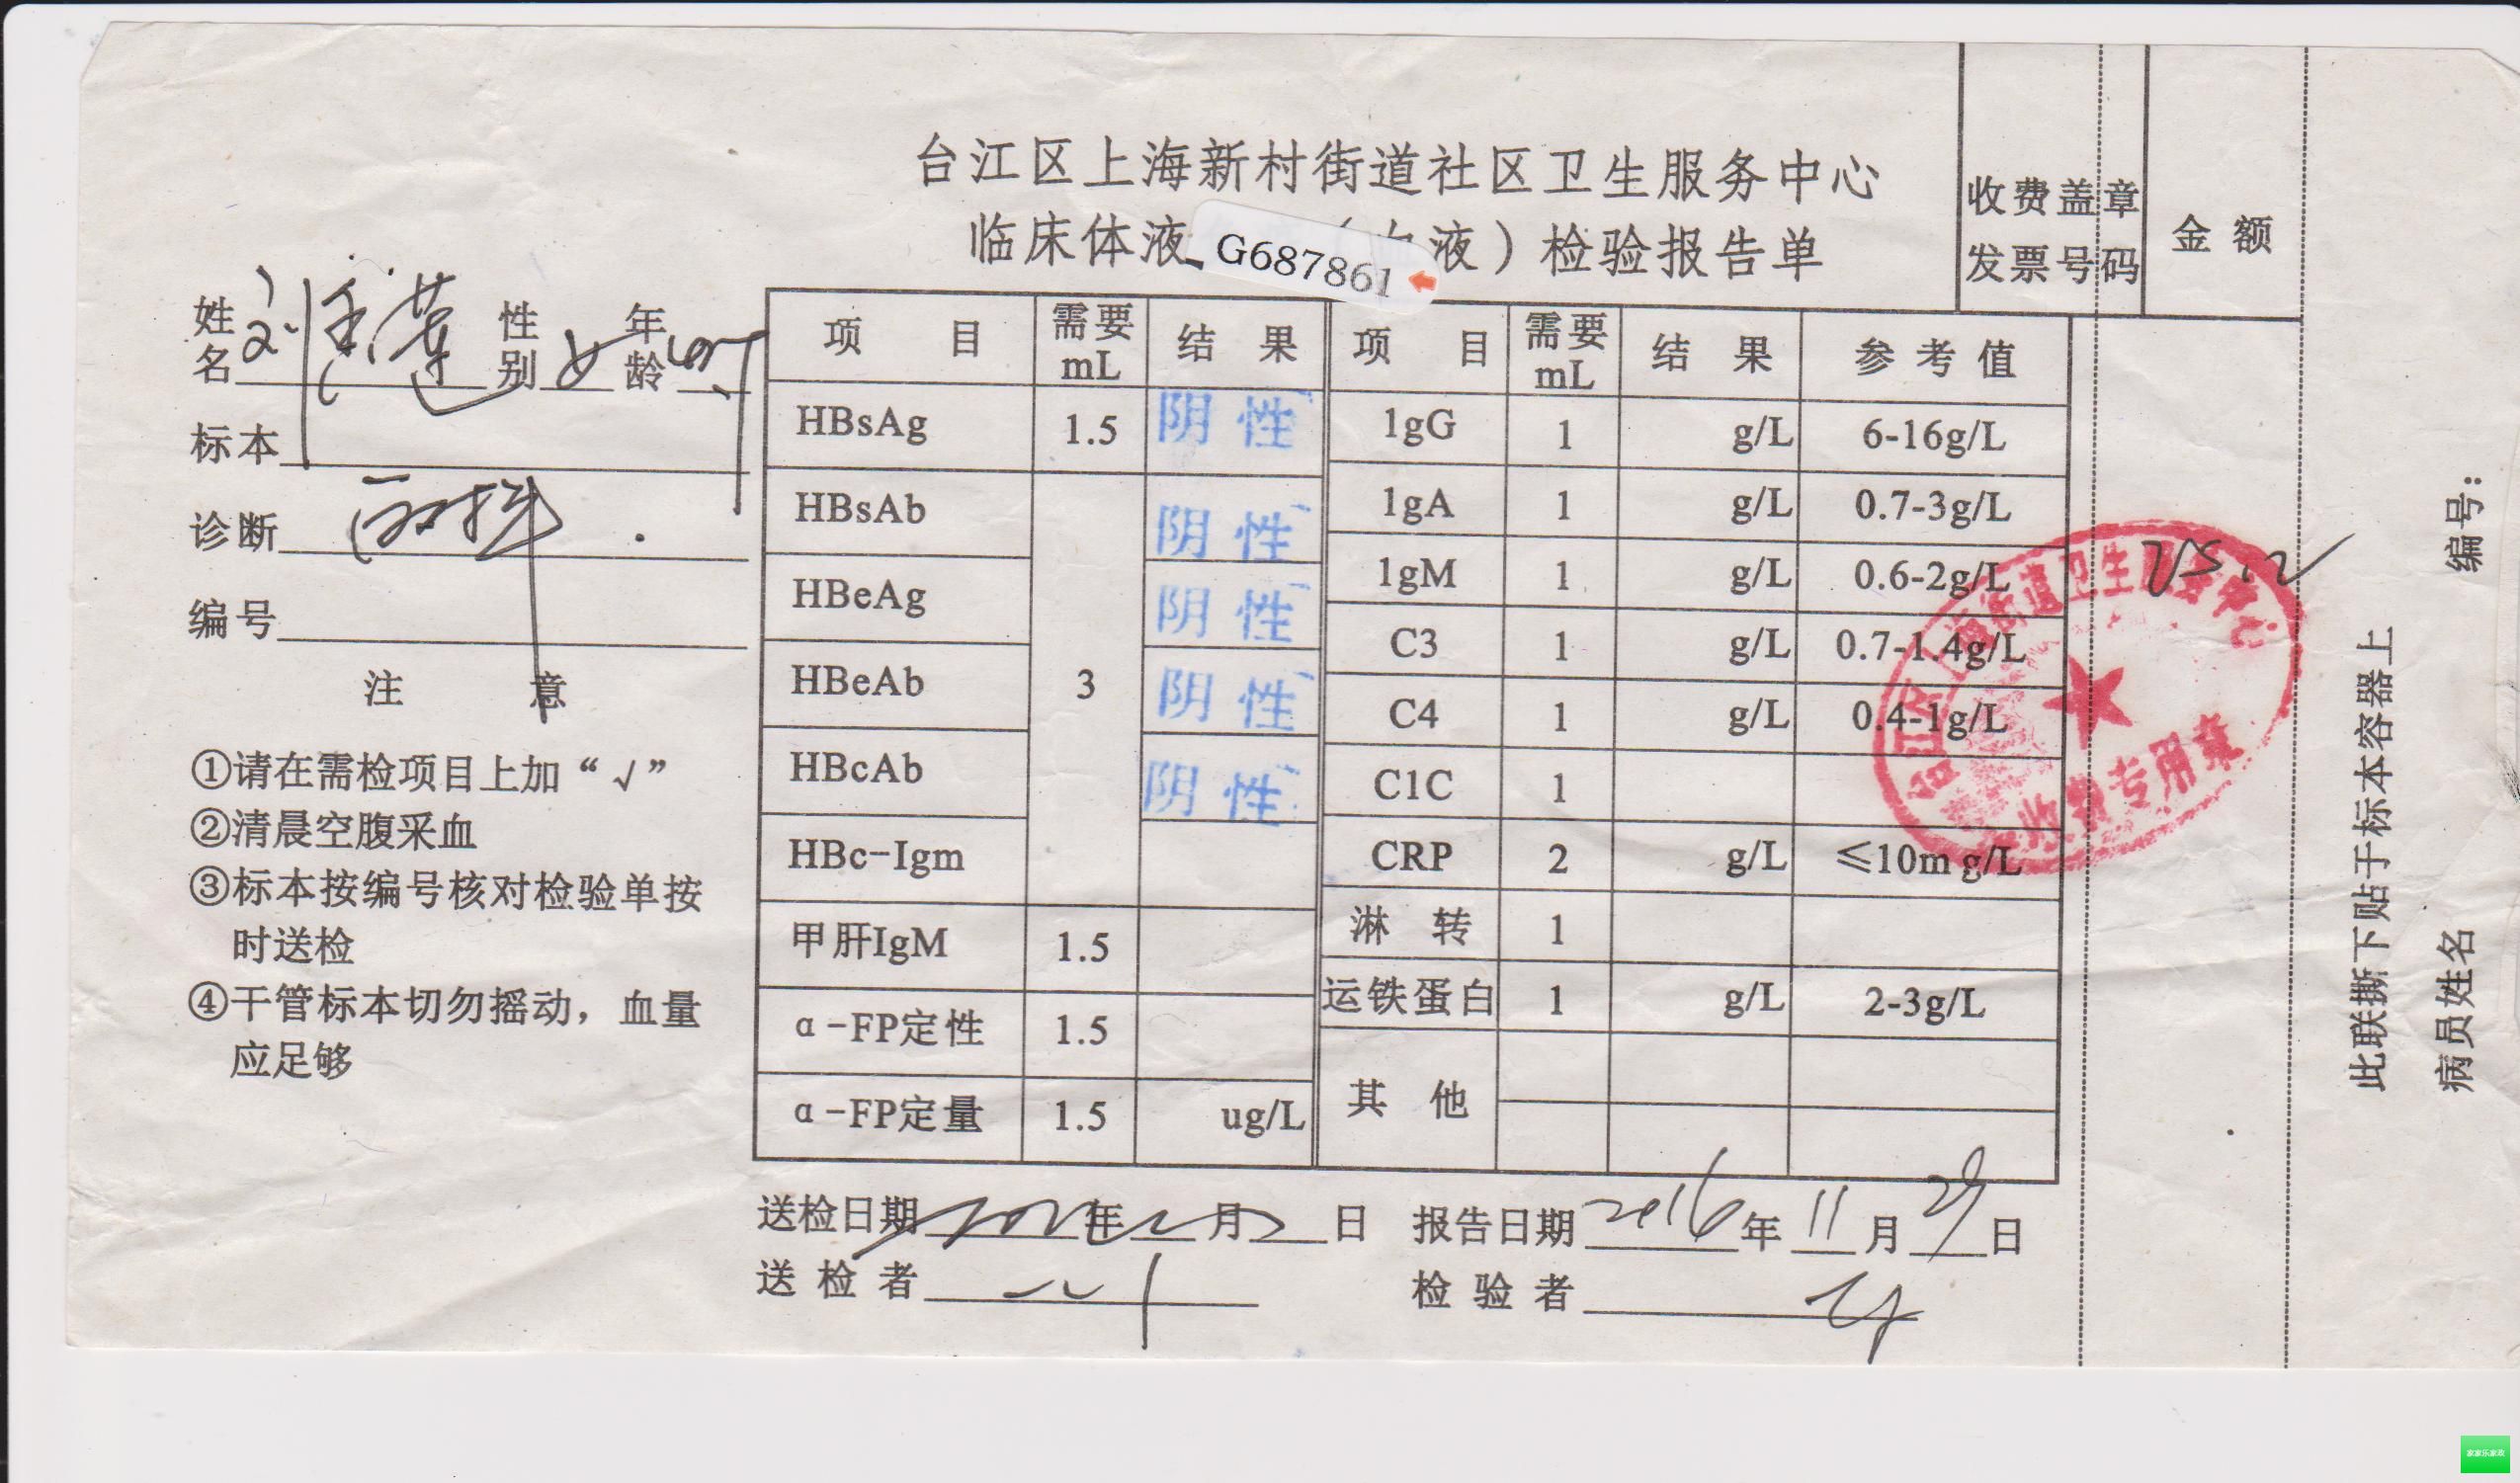 台江区上海新村街道社区卫生服务中心
临床体液（血液）检验报告单
G687861
收费盖章
发票号码
金 额
姓名 刘 莲 性别 女 年龄
标本
诊断
编号
注 意
①请在需检项目上加“√”
②清晨空腹采血
③标本按编号核对检验单按
时送检
④干管标本切勿摇动，血量
应足够
项 目 需要mL 结 果 项 目 需要mL 结 果 参 考 值
HBsAg 1.5 阴性 1gG 1 g/L 6-16g/L
HBsAb 3 阴性 1gA 1 g/L 0.7-3g/L
HBeAg 阴性 1gM 1 g/L 0.6-2g/L
HBeAb 阴性 C3 1 g/L 0.7-1.4g/L
HBcAb 阴性 C4 1 g/L 0.4-1g/L
HBc-Igm C1C 1
甲肝IgM 1.5 CRP 2 g/L ≤10mg/L
α-FP定性 1.5 淋 转 1
α-FP定量 1.5 ug/L 运铁蛋白 1 g/L 2-3g/L
其 他
送检日期 年 月 日 报告日期 2016 年 11 月 29 日
送 检 者 检 验 者
街道卫生服务中心
收费专用章
此联撕下贴于标本容器上
编号：
病员姓名
家家乐家政